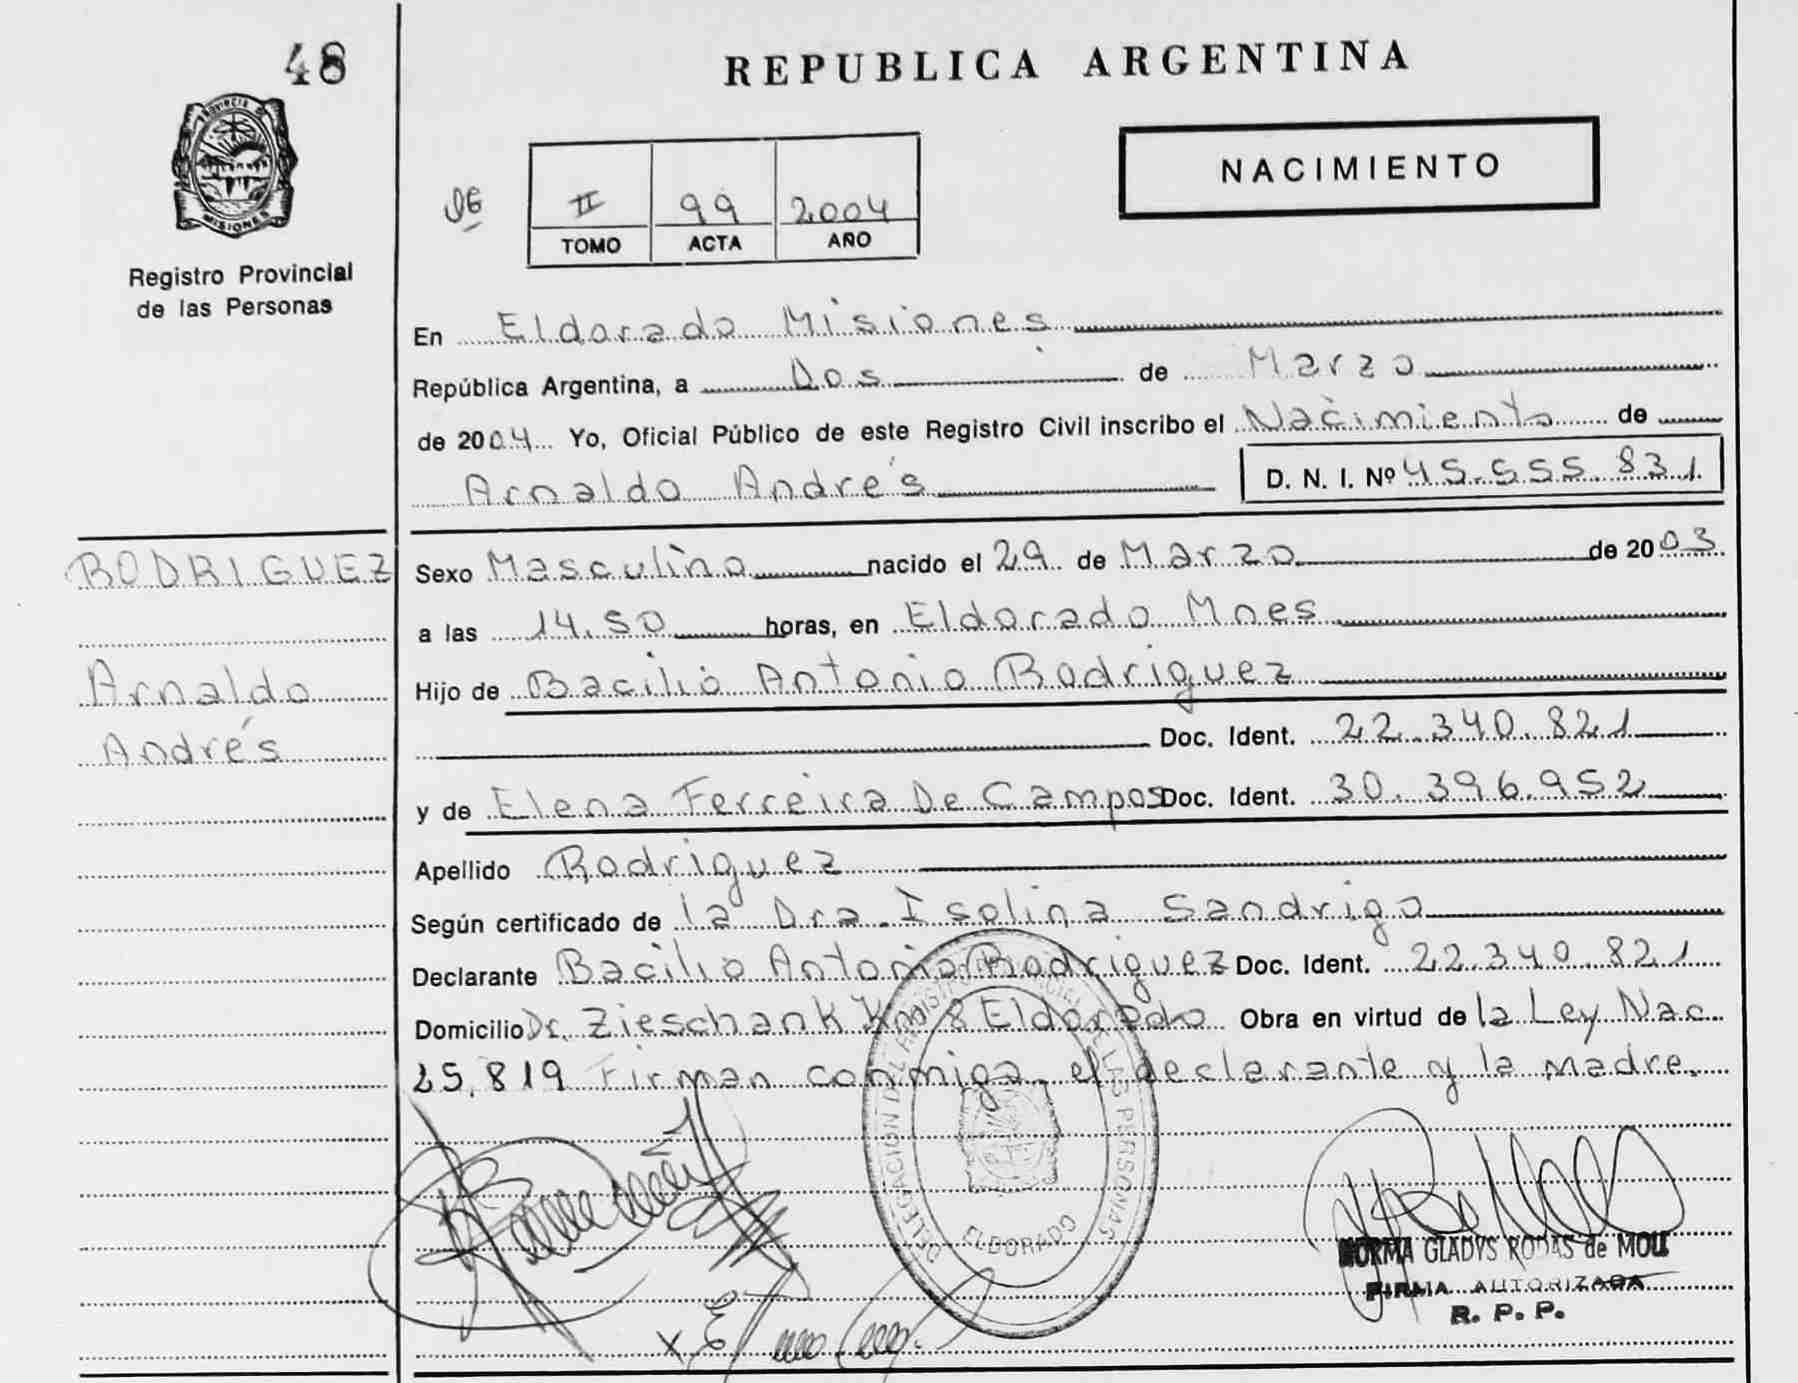 48
REPUBLICA ARGENTINA
PROVINCIA DE
MISIONES
Registro Provincial
de las Personas
NACIMIENTO
II 99 2004
TOMO ACTA AÑO
En Eldorado Misiones
República Argentina, a Dos de Marzo
de 2004 Yo, Oficial Público de este Registro Civil inscribo el Nacimiento de
Arnaldo Andrés D. N. I. Nº 45.555.831
RODRIGUEZ
Arnaldo
Andrés
Sexo Masculino nacido el 29 de Marzo de 2003
a las 14.50 horas, en Eldorado Mnes
Hijo de Bacilio Antonio Rodriguez
Doc. Ident. 22.340.821
y de Elena Ferreira De Campos Doc. Ident. 30.396.952
Apellido Rodriguez
Según certificado de la Dra. Isolina Sandrigo
Declarante Bacilio Antonio Rodriguez Doc. Ident. 22.340.821
Domicilio Dr. Zieschank Km 8 Eldorado Obra en virtud de la Ley Nac.
25.819 Firman conmigo, el declarante y la madre.
DELEGACION DEL REGISTRO PROVINCIAL DE LAS PERSONAS
ELDORADO
NORMA GLADYS RODAS de MOLL
FIRMA AUTORIZADA
R. P. P.